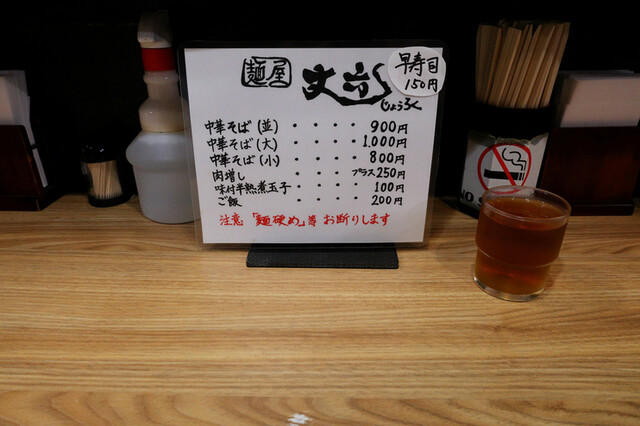 麺屋 丈六
じょうろく
早寿司
150円
中華そば(並)・・・・900円
中華そば(大)・・・・1,000円
中華そば(小)・・・・800円
肉増し・・・・プラス250円
味付半熟煮玉子・・・・100円
ご飯・・・・200円
注意「麺硬め」等お断りします
NO S